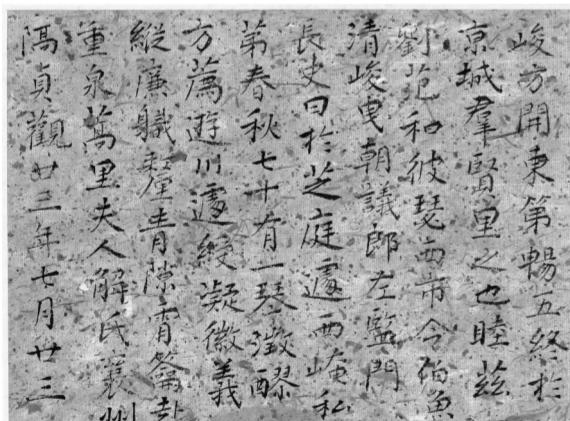 峻方開東第暢五終於
京城羣賢里之也睦茲
劉范和彼瑟西市令伯魚
清峻曳朝議郎左監門
長史曰於芝庭遽西崦私
第春秋七十有一琴澂醪
方薦遊川遽絞凝徽義
縱廉職犛青隙宵籥卦
重泉萬里夫人解氏襄州
隔貞觀廿三年七月廿三